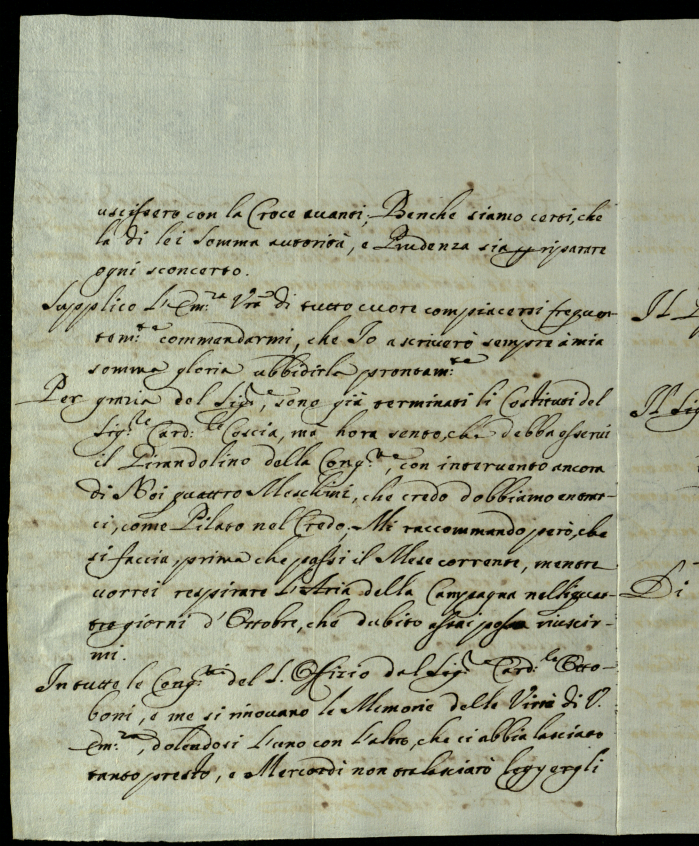 uscissero con la Croce avanti; Benche siamo certi, che
la di lei somma autorità, e Prudenza sia p riparare
ogni sconcerto.
Supplico L'Em:za Vra di tutto cuore compiacersi frequen-
tem:te commandarmi, che Io ascriverò sempre à mia
somma gloria ubbidirla prontam:te
Per grazia del Sig:re, sono già terminati li Costituti del
Sig:re Card:le Coscia, mà hora sento, che debba esservi
il Pirandolino della Cong:ne, con intervento ancora
di Noi quattro Meschini, che credo dobbiamo entrar-
ci, come Pilato nel Credo; Mi raccommando però, che
si faccia, prima che passi il Mese corrente, mentre
vorrei respirare L'Aria della Campagna nelli
giorni d'Ottobre, che dubito assai possa riuscir-
mi.
In tutte le Cong:ni del S. Offizio dal Sig:r Card:le Otto-
boni, e me si rinovano le Memorie delle Virtù di V.
Em:za, dolendosi L'uno con L'altro, che ci abbia lasciato
tanto presto, e Mercordì non tralasciarò leggergli
Il
Il Sig
Di